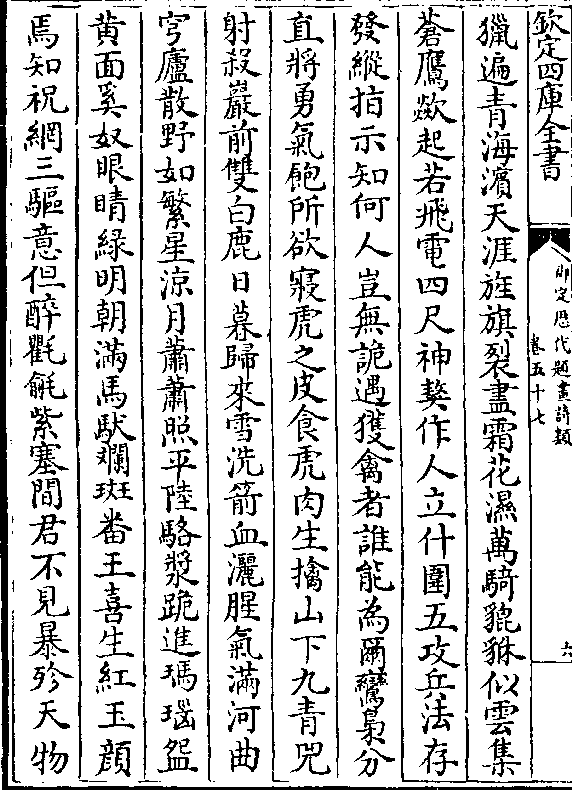 欽定四庫全書
御定歴代題畫詩類
卷五十七
六
獵遍青海濱天涯旌旗裂盡霜花濕萬騎貔貅似雲集
蒼鷹歘起若飛電四尺神獒作人立什圍五攻兵法存
發縱指示知何人豈無詭遇獲禽者誰能為爾鸞梟分
直將勇氣飽所欲寢虎之皮食虎肉生擒山下九青兕
射殺巖前雙白鹿日暮歸來雪洗箭血灑腥氣滿河曲
穹廬散野如繁星涼月蕭蕭照平陸駱漿跪進瑪瑙盌
黄面奚奴眼睛綠明朝滿馬馱斕斑畨王喜生紅玉顔
焉知祝網三驅意但醉氍毹紫塞間君不見暴殄天物